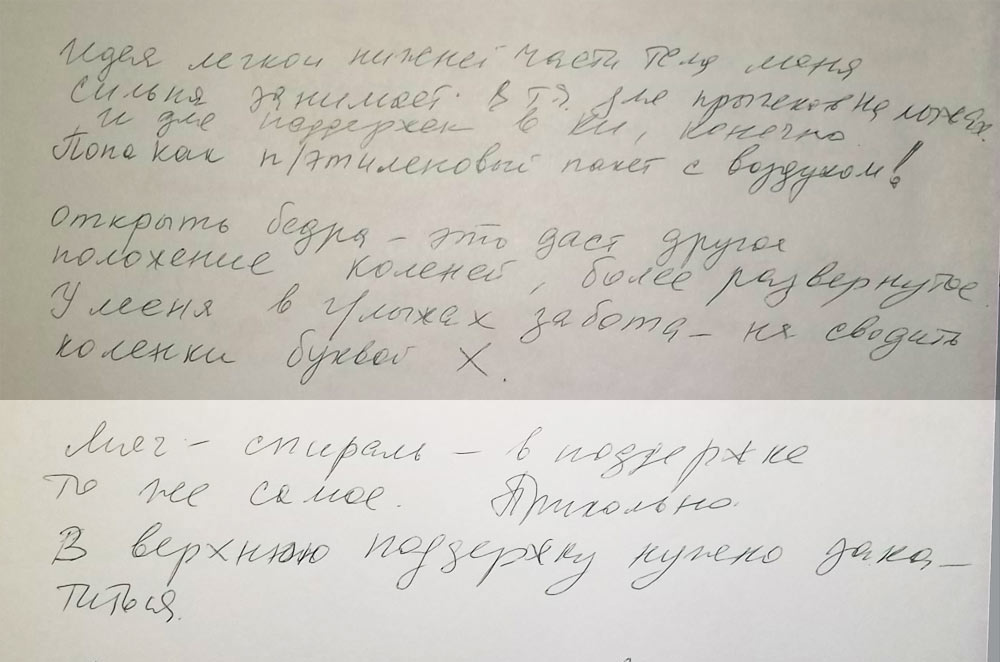 Идея легкой нижней части тела меня
сильно занимает. В т.ч. для прыжков на лыжах.
и для поддержек в КИ, конечно
Попа как п/этиленовый пакет с воздухом!
Открыть бедра – это даст другое
положение коленей, более развернутое.
У меня в лыжах забота – не сводить
коленки буквой Х.
– спираль – в поддержке
то же самое. Прикольно.
В верхнюю поддержку нужно зака-
титься.